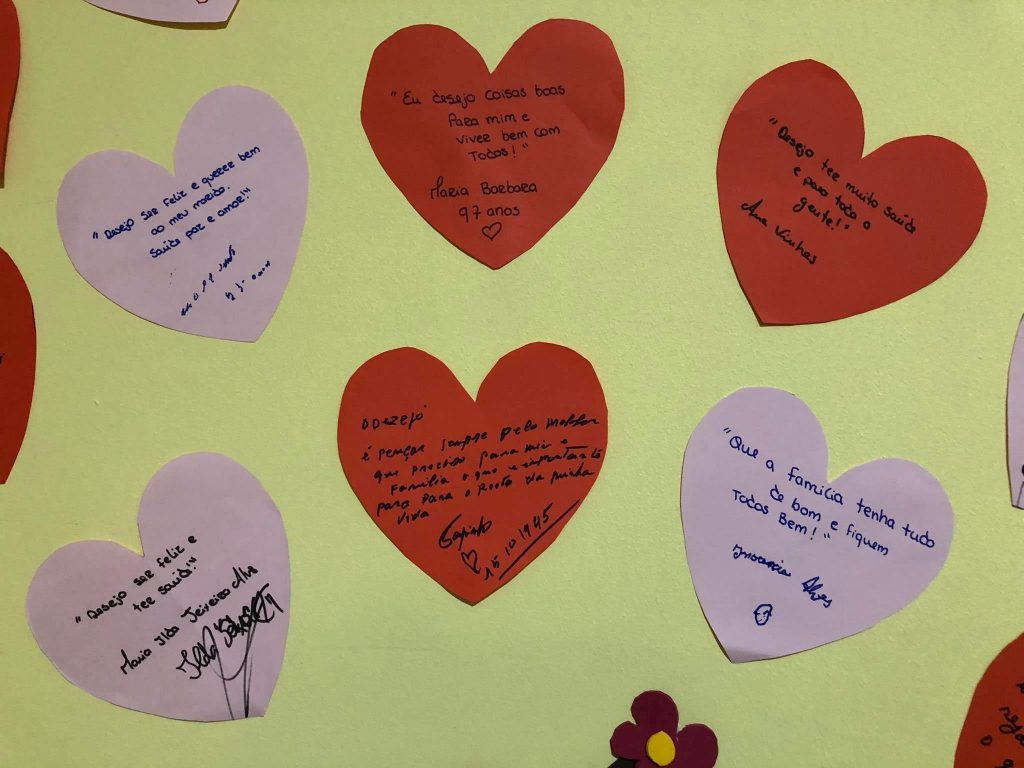 "Desejo ser feliz e querer bem
ao meu marido.
Saúde paz e amor!"
"Eu desejo coisas boas
Para mim e
viver bem com
Todos!"
Maria Barbara
97 anos
"Desejo ter muito saúde
e para toda a
gente!"
Ana Vinhas
"Desejo ser feliz e
ter saúde!"
Maria Ilda Teixeira Alves
Ilda
O Dezejo
é pençar sempre pelo melhor
que preciso para mim e
Família o que
para Para o Resto da minha
Vida
15 10 1945
"Que a família tenha tudo
de bom e fiquem
Todos Bem!"
Alves